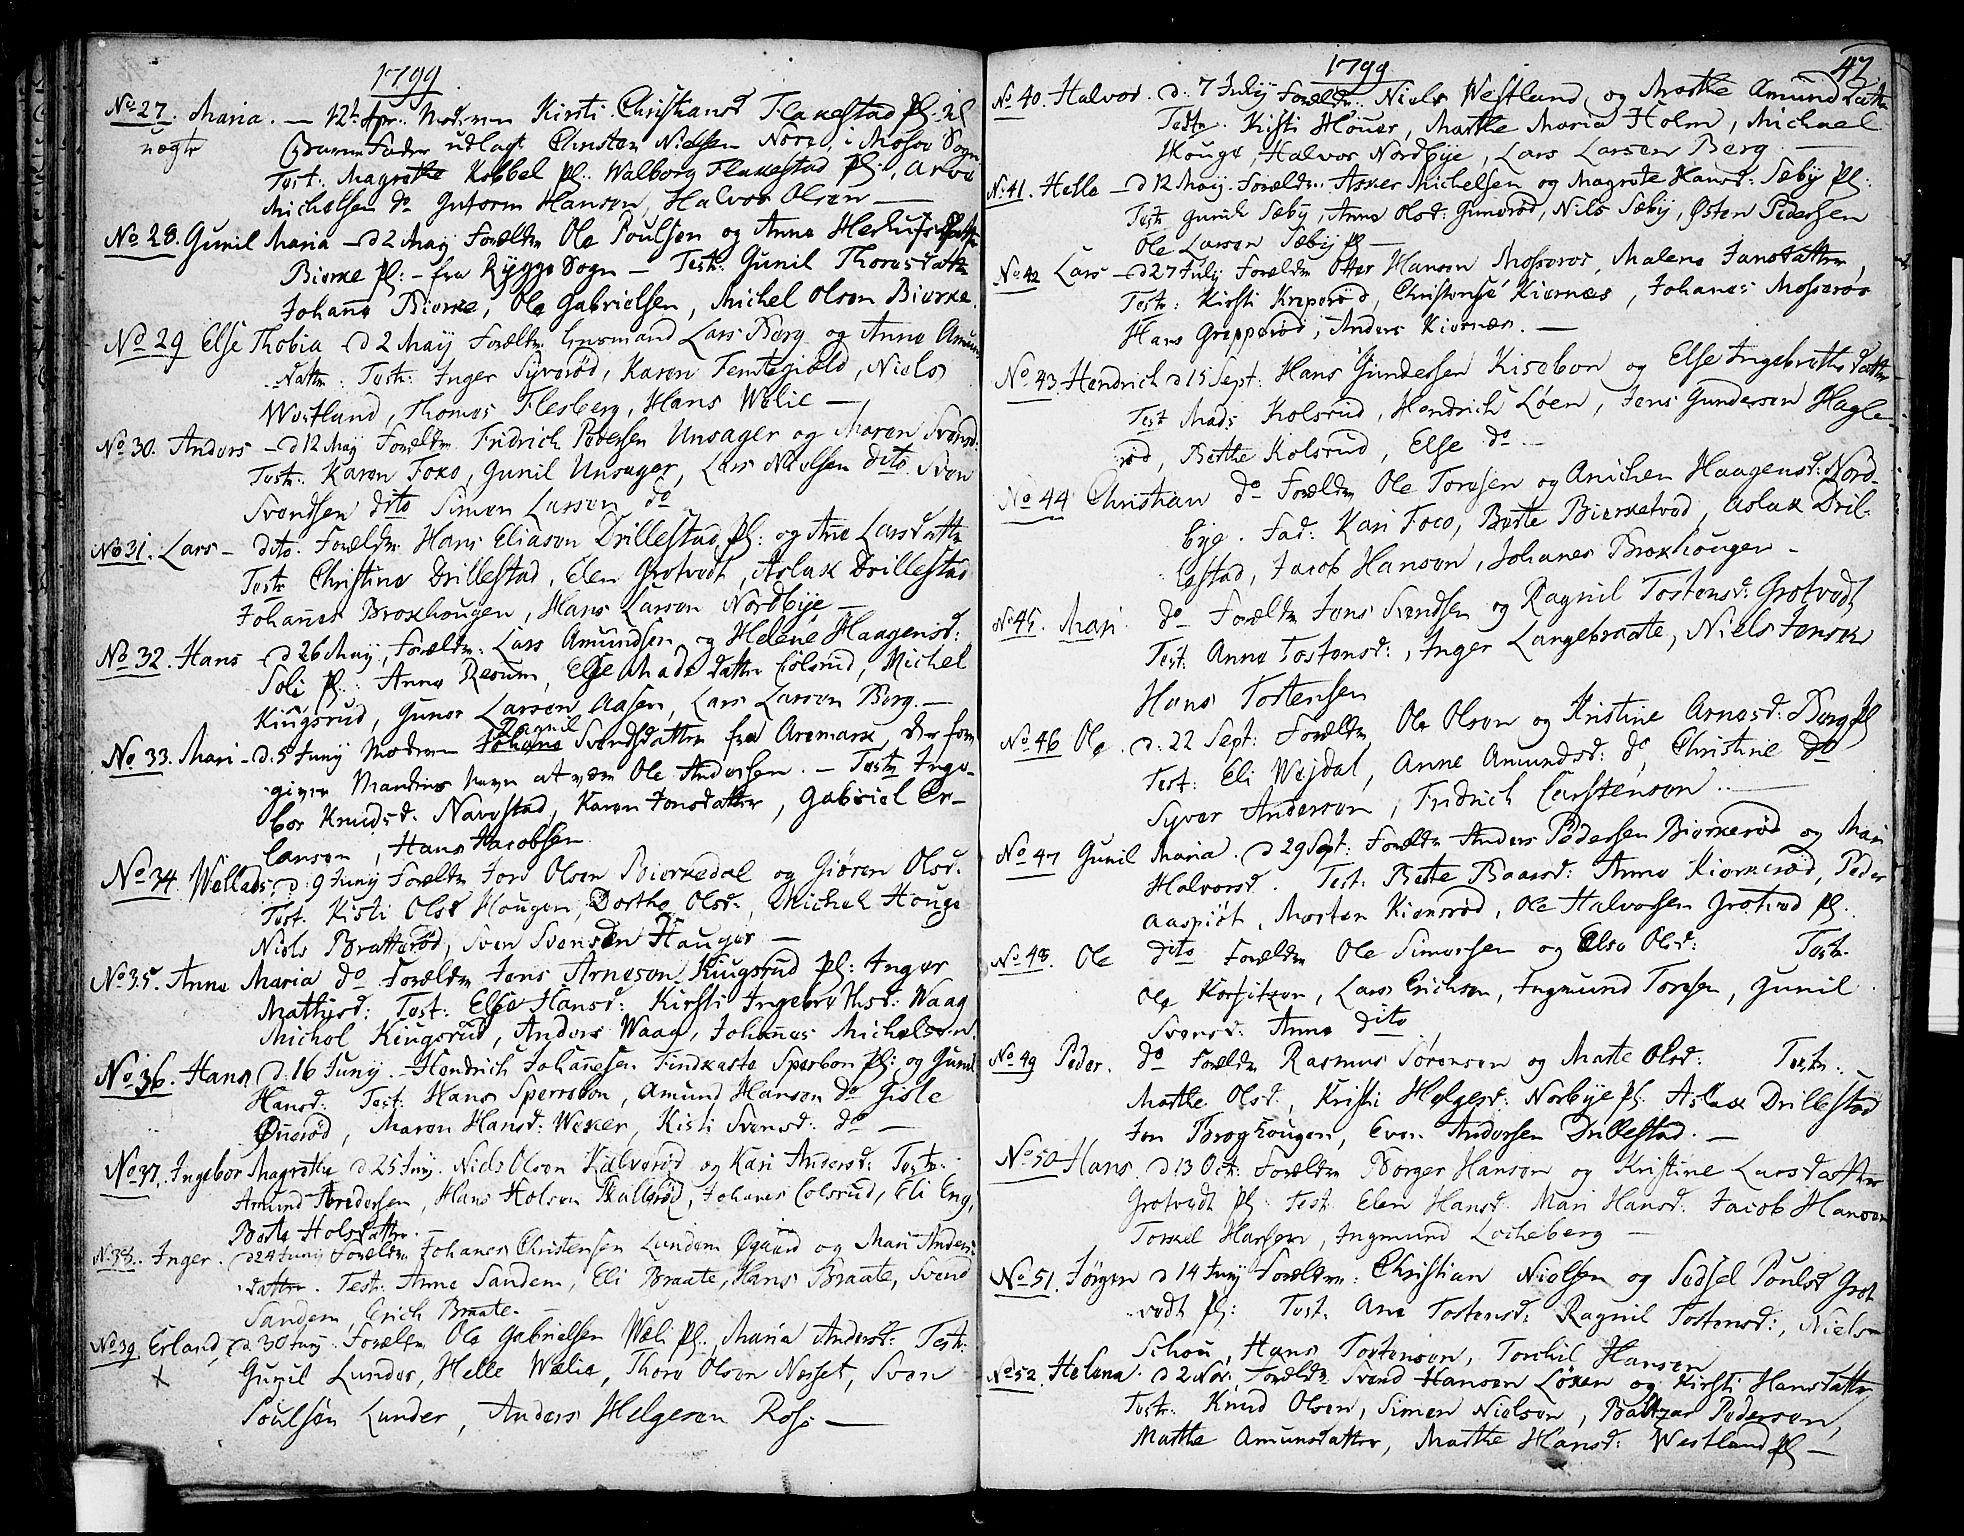 1799
No 27. Maria. — 12te Apr. Moderen Kirsti Christiansd Flakestad pl: 
uægte
Barne Fader udlagt Christen Nielsen Nore, i Mosse Sogn
Test: Magrethe Kabbel pl: Walborg Flakestad pl:
Michelsen do Gutorm Hansen, Halvor Olsen —
No 28. Gunil Maria — d 2 May Forældre Ole Poulsen og Anne
Bierke pl: — fra Rygge Sogn — Test: Gunil Thoresdatter
Johane Bierke, Ole Gabrielsen, Michel Olsen Bierke.
No 29 Else Thobia d 2 May Forældre Lars Berg og Anne Amun
datter: Test: Inger Syverød, Karen Femtegiæld, Niels
Westland, Thomas Flesberg, Hans Welie —
No 30. Anders — d 12 May Forældre Fridrich Pedersen Unsager og Maren Svensd:
Test: Karen Foxo, Gunil Unsager, Lars Nielsen dito Sven
Svendsen dito Simon Larsen do
No 31. Lars — dito. Forældre Hans Eliason Drillestad pl: og Ane Larsdatter
Test Christine Drillestad, Elen Grotvedt, Aslak Drillestad
Johanes Broxhougen, Hans Larsen Nordbye —
No 32. Hans d 26 May, Forældre: Lars Amundsen og Helene Haagensd:
Soli pl: Anne Resum, Else Madsdatter Colsrud, Michel
Kiugsrud, Guner Larsen Aasen, Lars Larsen Berg. —
No 33. Mari — d. 5 Juny Moderen Ragnil Svendsdatter fra Aremark, der for
giver Mandens navn at være Ole Andersen. — Test: Inge-
bor Knudsd: Navestad, Karen Jonsdatter, Gabriel Er-
lansen, Hans Jacobsen
No 34. Wellads d. 9 Juny Forældre Jon Olsen Bierkedal og Giøren Olsd.
Test. Kisti Olsd Hougen, Dorthe Olsd:, Michel Houge
Niels Bratterød, Sven Svensen Hauger —
No 35. Anne Maria do Forældre Jens Arnesen Kiugsrud pl: Inger
Mattisd: Test: Else Hansd: Kirsti Ingebrethsd: Waag
Michel Kiugsrud, Anders Waag, Johanes Michelsen.
No 36. Hans d. 16 Juny. Hendrich Johanesen Findkaste Sperbon pl: og Gunil
Hansd: Test: Hans Sperrebon, Amund Hansen do Gisle
Øuerød, Maren Hansd: Weker, Kisti Svensd: do —
No 37. Ingebor Magrethe d 25 Juny. Niels Olsen Kalverød og Kari Andersd: Test:
Amund Bredersen, Hans Holsen Skallerød, Johanes Colsrud, Eli Eng,
Berte Holsdatter. —
No 38. Inger. d 24 Juny Forældre Johanes Christensen Lundem Øgaard og Mari Anders-
datter. Test: Anne Sandem, Eli Braate, Hans Braate, Svend
Sandem, Erich Braate.
No 39. Erland, d. 30 Juny Forældre Ole Gabrielsen Wæli pl: Maria Andersd: Test:
X
Gunil Lunder, Helle Wælie, Thore Olsen Nesset, Sven
Poulsen Lunder, Anders Helgesen Rose —
1799
47
No 40. Halvor. d. 7 July Forældre: Niels Westland og Marthe Amunddatter
Test: Kisti Houer, Marthe Maria Holm, Michael
Houge, Halvor Nordbye, Lars Larsen Berg. —
No 41. Helle — d 12 May. Forældre: Asker Michelsen og Magrete Hansd: Sæby pl:
Test Gunil Sæby, Anne Olsd: Gunerød, Nils Sæby, Østen Pedersen
Ole Larsen Sæby pl —
No 42 Lars — d 27 July Forældre Otter Hansen Mosserøs, Malene Jansdatter,
Test: Kirsti Kreperød, Christense Kiernæs, Johanes Mosserøs
Hans Grepperød, Anders Kiernæs. —
No 43. Hendrich d 15 Sept: Hans Gundersen Kisebon og Else Ingebrethsdatter
Test Mads Kolsrud, Hendrich Løen, Jens Gundersen Hagle-
rød, Berthe Kolsrud, Else do —
No 44 Christian do Forældre Ole Toresen og Anichen Haagensd: Nord-
bye. Fad: Kari Foco, Berte Bierketved, Aslak Dril-
lestad, Jacob Hansen, Johanes Broxhougen —
No 45. Mari do Forældre Jens Svendsen og Ragnil Tostensd: Grotvedt
Test: Anne Tostensd:, Inger Langebraate, Niels Jensen
Hans Tostensen
No 46 Ole d. 22 Sept: Forældre Ole Olsen og Kristine Arnesd: Berg pl
Test: Eli Wejdal, Anne Amundsd: do, Christine do
Syver Andersen, Fridrich Carstensen —
No 47 Gunil Maria. d 29 Sept: Forældre Anders Pedersen Bierkerød og Mari
Halvorsd. Test: Berte Baarsd: Anne Kiernerød, Peder
Aaspiøt, Morten Kiensrød, Ole Halvorsen Grotved pl.
No 48. Ole dito Forældre Ole Simersen og Else Olsd: Test.
Ole Korfitzen, Lars Erichsen, Ingmund Toresen, Gunil
Svensd: Anne dito
No 49 Peder. do Forældre Rasmus Sørensen og Marte Olsd: Test:
Marthe Olsd, Kristi Helgesd: Norbye pl: Aslak Drillestad
Jon Broghougen, Even Andersen Drillestad. —
No 50 Hans. d 13 Oct: Forældre Borger Hansen og Kristine Larsdatter
Grotvedt pl: Test: Elen Hansd: Mari Hansd: Jacob Hansen
Torkel Hansen, Ingmund Locheberg —
No 51. Jørgen d 14 Juny Forældre: Christian Nielsen og Sidsel Poulsd Grot
vedt pl: Test. Ane Tostensd: Ragnil Tostensd:, Niels
Schou, Hans Tostensen, Torchil Hansen
No 52. Helena. d 2 Nov: Forældre Svend Hansen Løken og Kirsti Hansdatter
Test: Knud Olsen, Simen Nielsen, Baltzar Pedersen,
Marthe Amunsdatter, Marthe Hansd: Westland pl —